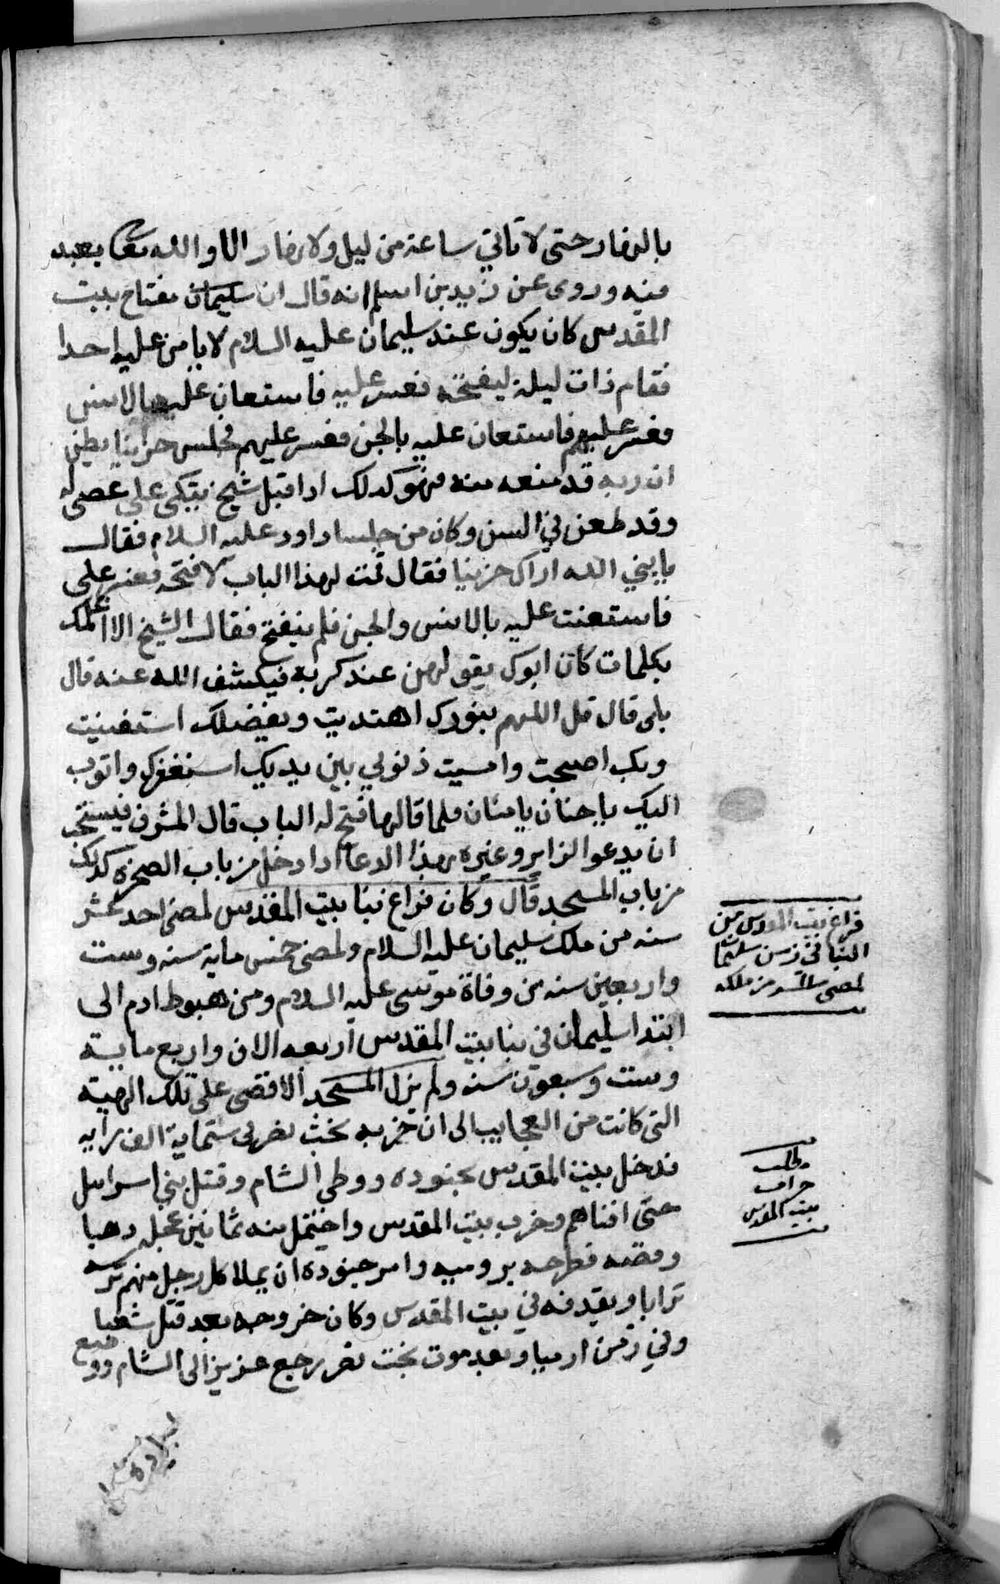 بالنهار حتى لا تاتي ساعة من ليل ولا نهار الا والله تعا يعبد
فيه وروى عن زيد بن اسلم انه قال ان سليمان مفتاح بيت
المقدس كان يكون عند سليمان عليه السلام لا يامن عليه احدا
فقام ذات ليلة ليفتحه فعسر عليه فاستعان عليه بالانس
فعسر عليهم فاستعان عليه بالجن فعسر عليهم فجلس حزينا يظن
ان ربه قد منعه منه فهو كذلك اذ اقبل شيخ يتكى على عصى له
وقد طعن في السن وكان من جلسا داود عليه السلام فقال
يا نبي الله اراك حزينا فقال قمت لهذا الباب لافتحه فعسر علي
فاستعنت عليه بالانس والجن فلم ينفتح فقال الشيخ الا اعلمك
بكلمات كان ابوك يقولهن عند كربه فيكشف الله عنه قال
بلى قال قل اللهم بنورك اهتديت وبفضلك استغنيت
وبك اصبحت وامسيت ذنوبي بين يديك استغفرك واتوب
اليك يا حنان يا منان فلما قالها فتح له الباب قال المشرف فيستحب
ان يدعوا الزاير وغيره بهذا الدعا اذا دخل من باب الصخرة كذلك
من باب المسجد قال وكان فراغ بنا بيت المقدس لمضي احد عشر
سنه من ملك سليمان عليه السلام ولمضي خمس ماية سنه وست
واربعين سنه من وفاة موسى عليه السلام ومن هبوط ادم الى
ابتدا سليمان في بنا بيت المقدس اربعه الاف واربع ماية
وست وسبعون سنه ولم يزل المسجد الاقصى على تلك الهية
التي كانت من العجايب الى ان خربه بخت نصر في ستماية الف راية
فدخل بيت المقدس بجنوده ووطي الشام وقتل بني اسرايل
حتى افناهم وخرب بيت المقدس واحتمل منه ثمانين عجله ذهبا
وفضه فطرحه برومية وامر جنوده ان يملا كل رجل منهم ترسه
ترابا ويقذفه في بيت المقدس وكان خروجه بعد قتل شعيا
وفي زمن ارميا وبعد موت بخت نصر رجع عزيز الى الشام ووضع
فراغ بيت المقدس من
البنا في زمن سليمان
لمضي من ملكه
مطلب
خراب
بيت المقدس